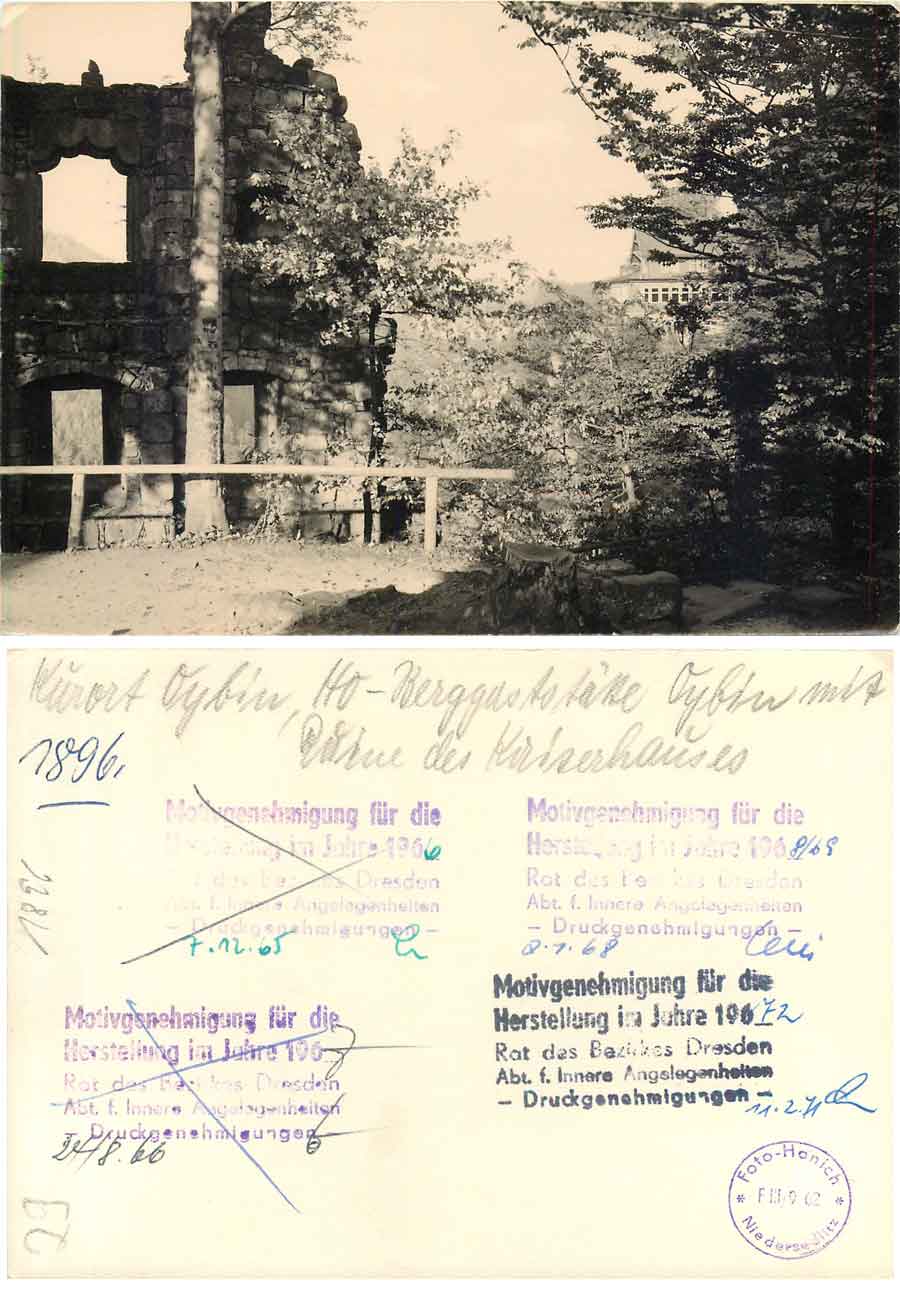 Kurort Oybin, HO-Berggaststätte Oybin mit
Ruine des Kaiserhauses
1896.
Motivgenehmigung für die
Herstellung im Jahre 1966
Rat des Bezirkes Dresden
Abt. f. Innere Angelegenheiten
- Druckgenehmigungen -
7.12.65
Motivgenehmigung für die
Herstellung im Jahre 1968/69
Rat des Bezirkes Dresden
Abt. f. Innere Angelegenheiten
- Druckgenehmigungen -
8.1.68
1896
Motivgenehmigung für die
Herstellung im Jahre 1967
Rat des Bezirkes Dresden
Abt. f. Innere Angelegenheiten
- Druckgenehmigungen -
24/8.66
Motivgenehmigung für die
Herstellung im Jahre 19672
Rat des Bezirkes Dresden
Abt. f. Innere Angelegenheiten
- Druckgenehmigungen -
11.2.71
29
* Foto-Hanich *
F III/9 62
Niedersedlitz